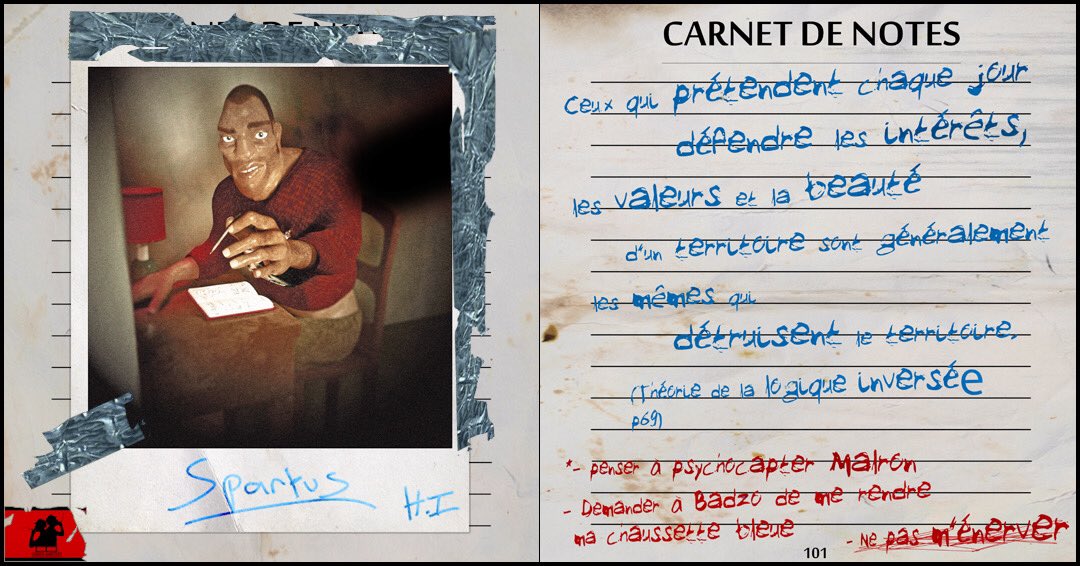 Spartus
H.I
CARNET DE NOTES
Ceux qui prétendent chaque jour
défendre les intérêts,
les valeurs et la beauté
d'un territoire sont généralement
les mêmes qui
détruisent le territoire.
(Théorie de la logique inversée
p69)
*- penser à psychocapter Malron
- Demander à Badzo de me rendre
ma chaussette bleue
- Ne pas m'énerver
101